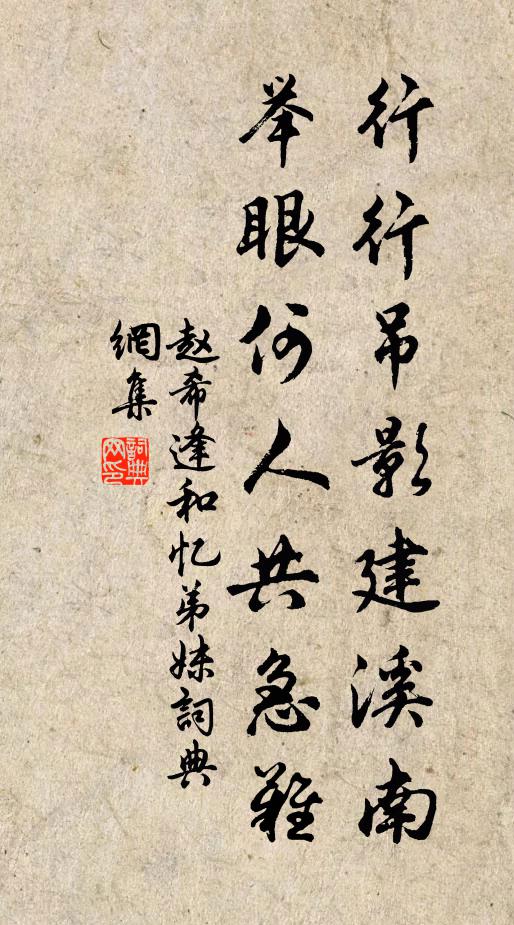 行行吊影建溪南
举眼何人共急难
赵希逢和忆弟妹詞典
網集
詞典网印